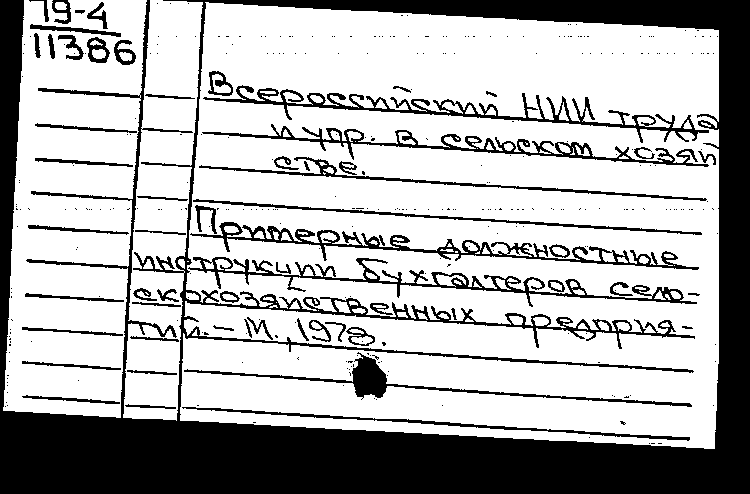 79-4
11386
Всероссийский НИИ труда
и упр. в сельском хозяй
стве.
Примерные должностные
инструкции бухгалтеров сель-
скохозяйственных предприя-
тий. - М., 1978.